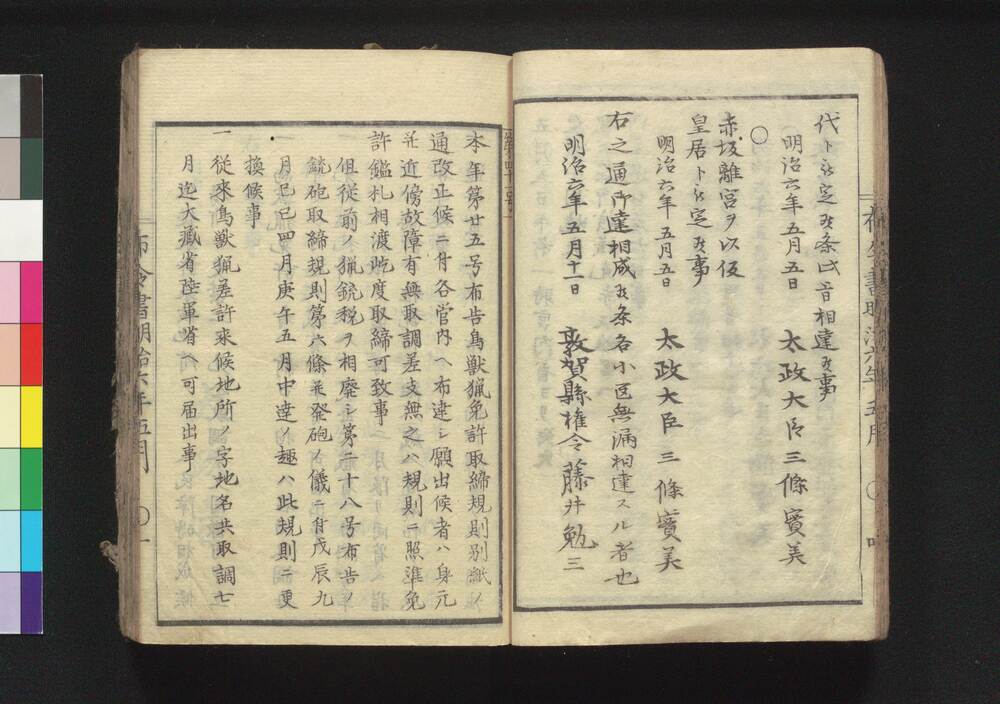 代ト被定候条此旨相達候事
明治六年五月五日
太政大臣三條實美
〇
赤坂離宮ヲ以仮
皇居ト被定候事
明治六年五月五日
太政大臣三條實美
右之通御達相成候条各小區無漏相達スル者也
明治六年五月十一日
敦賀縣権令藤井勉三
本年第廿五号布告鳥獣猟免許取締規則別紙ノ
通改正候ニ付各管内ヘ布達シ願出候者ハ身元
並近傍故障有無取調差支無之ハ規則ニ照準免
許鑑札相渡屹度取締可致事
但従前ノ猟銃税ヲ相廢シ第二十八号布告ノ
銃砲取締規則第六條並發砲ノ儀ニ付戊辰九
月己巳四月庚午五月中達ノ趣ハ此規則ニ更
換候事
一従来鳥獣猟差許来候地所ノ字地名共取調七
月迄大藏省陸軍省ヘ可届出事
布令書明治六年五月
〇一